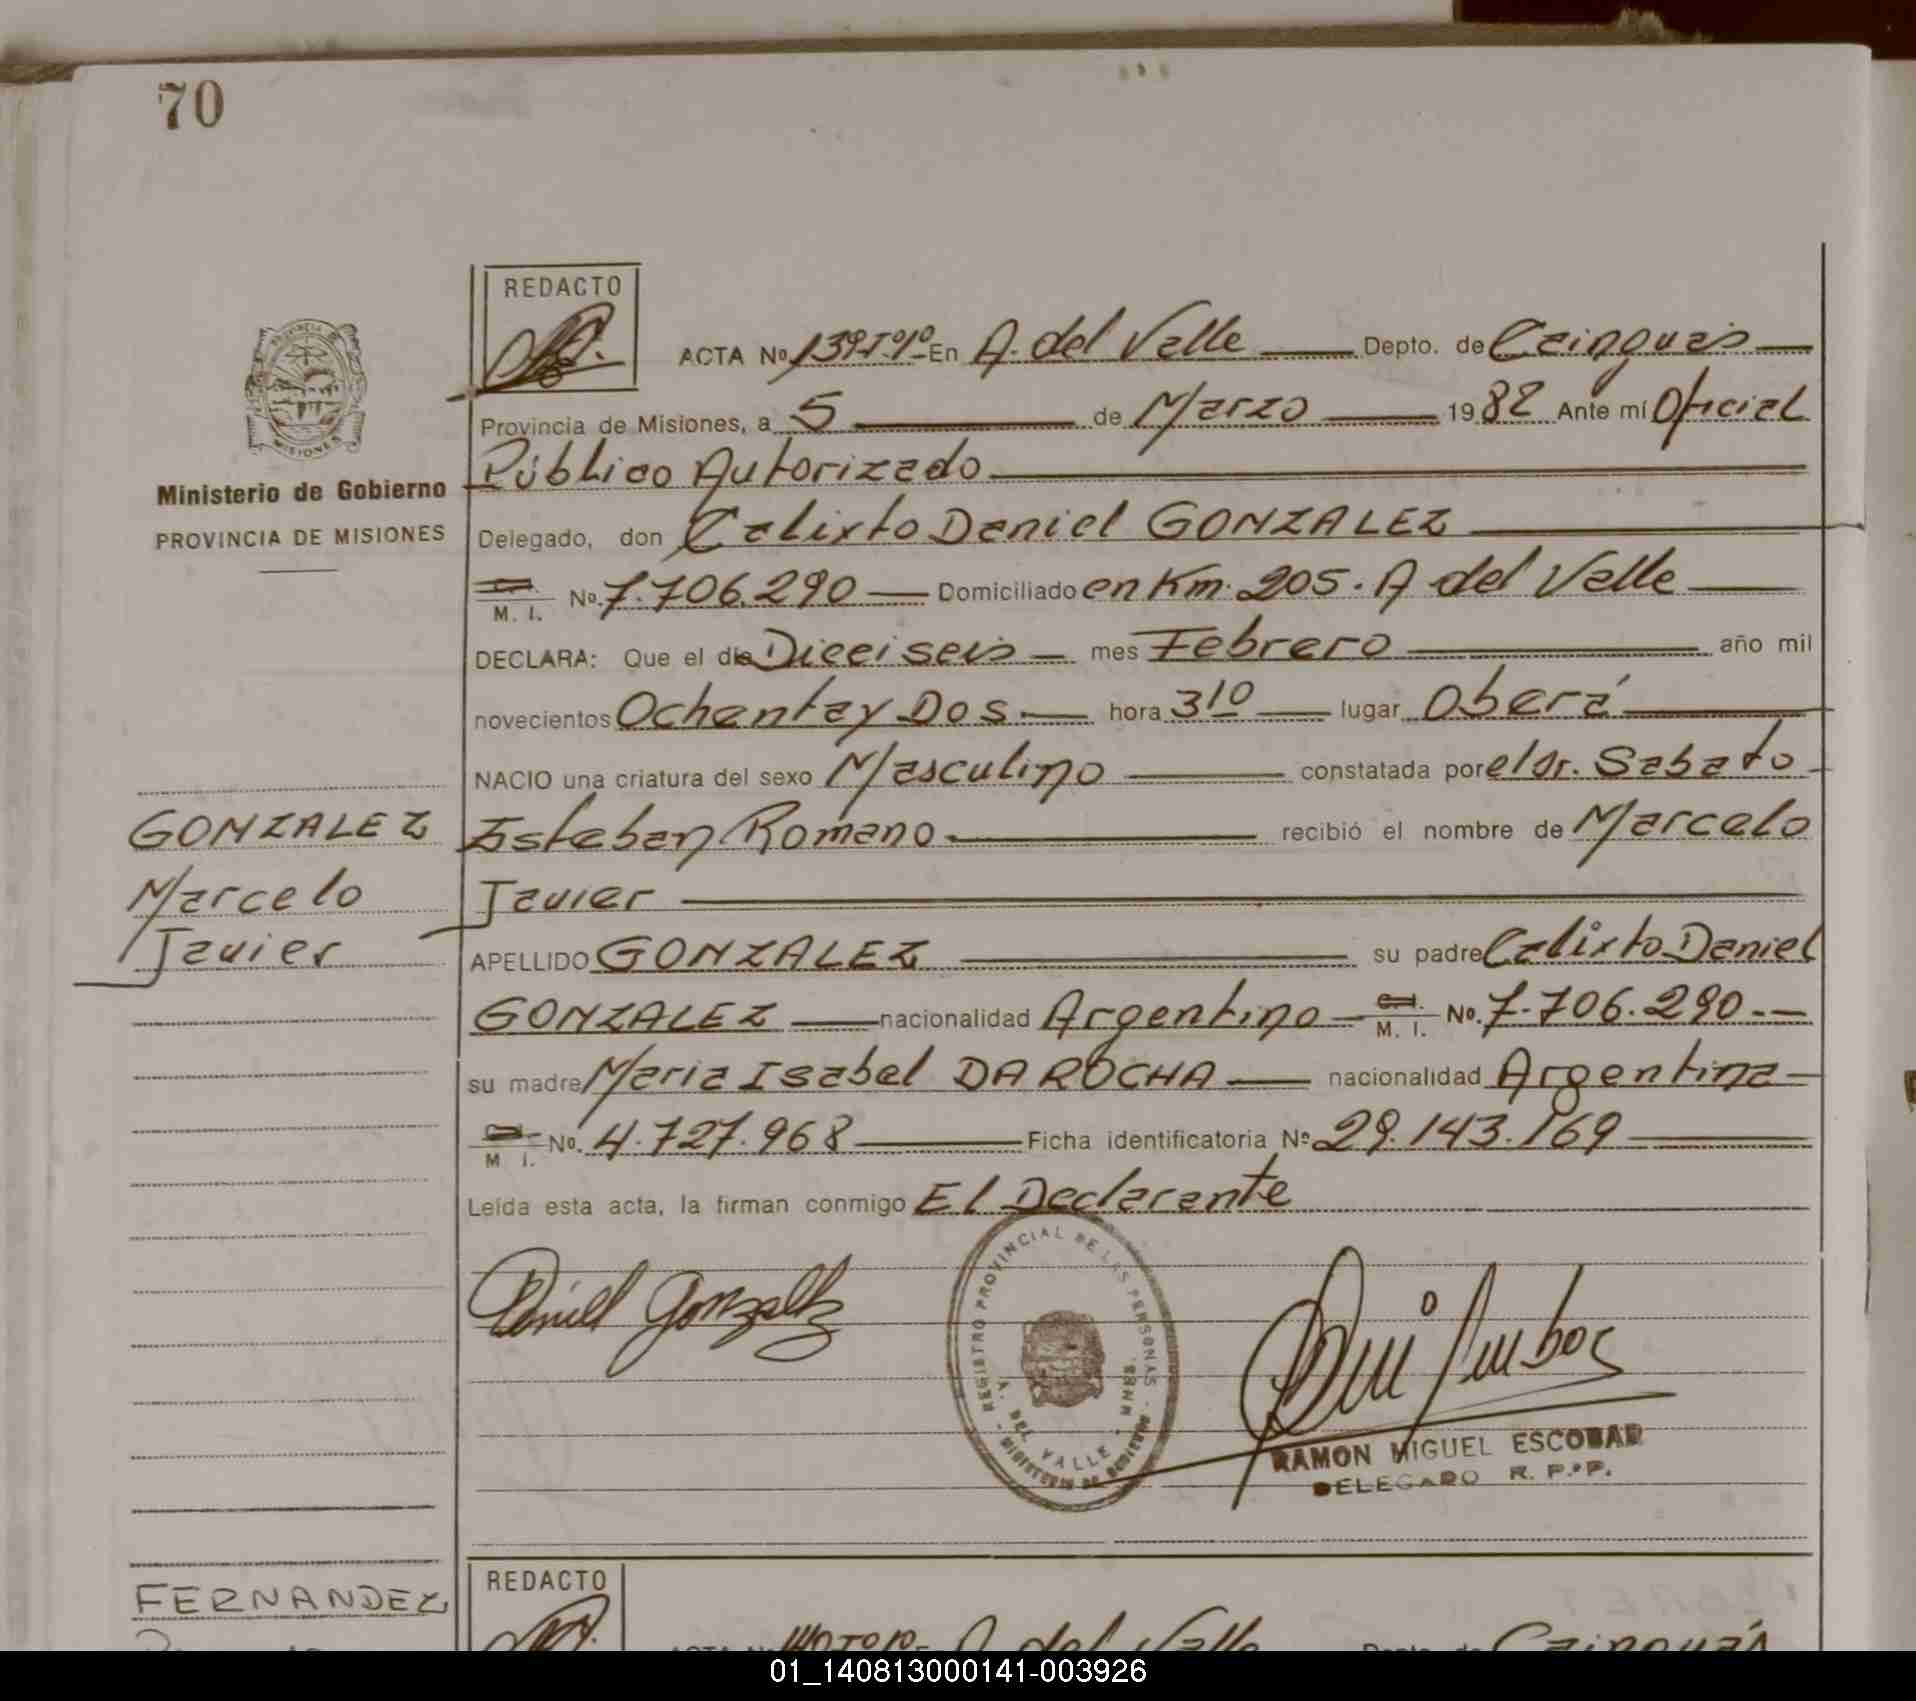 70
REDACTO
ACTA Nº 139Tº1º En A. del Valle Depto. de Cainguás
Provincia de Misiones, a 5 de Marzo 1982 Ante mí Oficial
Público Autorizado
Ministerio de Gobierno
PROVINCIA DE MISIONES
Delegado, don Calixto Daniel GONZALEZ
C.I. M. I. No. 7.706.290 Domiciliado en Km. 205. A del Valle
DECLARA: Que el día Dieciseis mes Febrero año mil
novecientos Ochenta y Dos hora 3 10 lugar Oberá
NACIO una criatura del sexo Masculino constatada por el Dr. Sabato
Esteban Romano recibió el nombre de Marcelo
Javier
GONZALEZ
Marcelo
Javier
APELLIDO GONZALEZ su padre Calixto Daniel
GONZALEZ nacionalidad Argentino C.I. M. I. No. 7.706.290
su madre Maria Isabel DA ROCHA nacionalidad Argentina
C.I. M I. No. 4.727.968 Ficha identificatoria Nº 29.143.169
Leída esta acta, la firman conmigo El Declarante
Daniel Gonzalez
REGISTRO PROVINCIAL DE LAS PERSONAS
A. DEL VALLE - MNES.
MINISTERIO DE GOBIERNO
RAMON MIGUEL ESCOBAR
DELEGADO R. P. P.
FERNANDEZ
REDACTO
A. del Valle Depto. de Cainguás
01_140813000141-003926